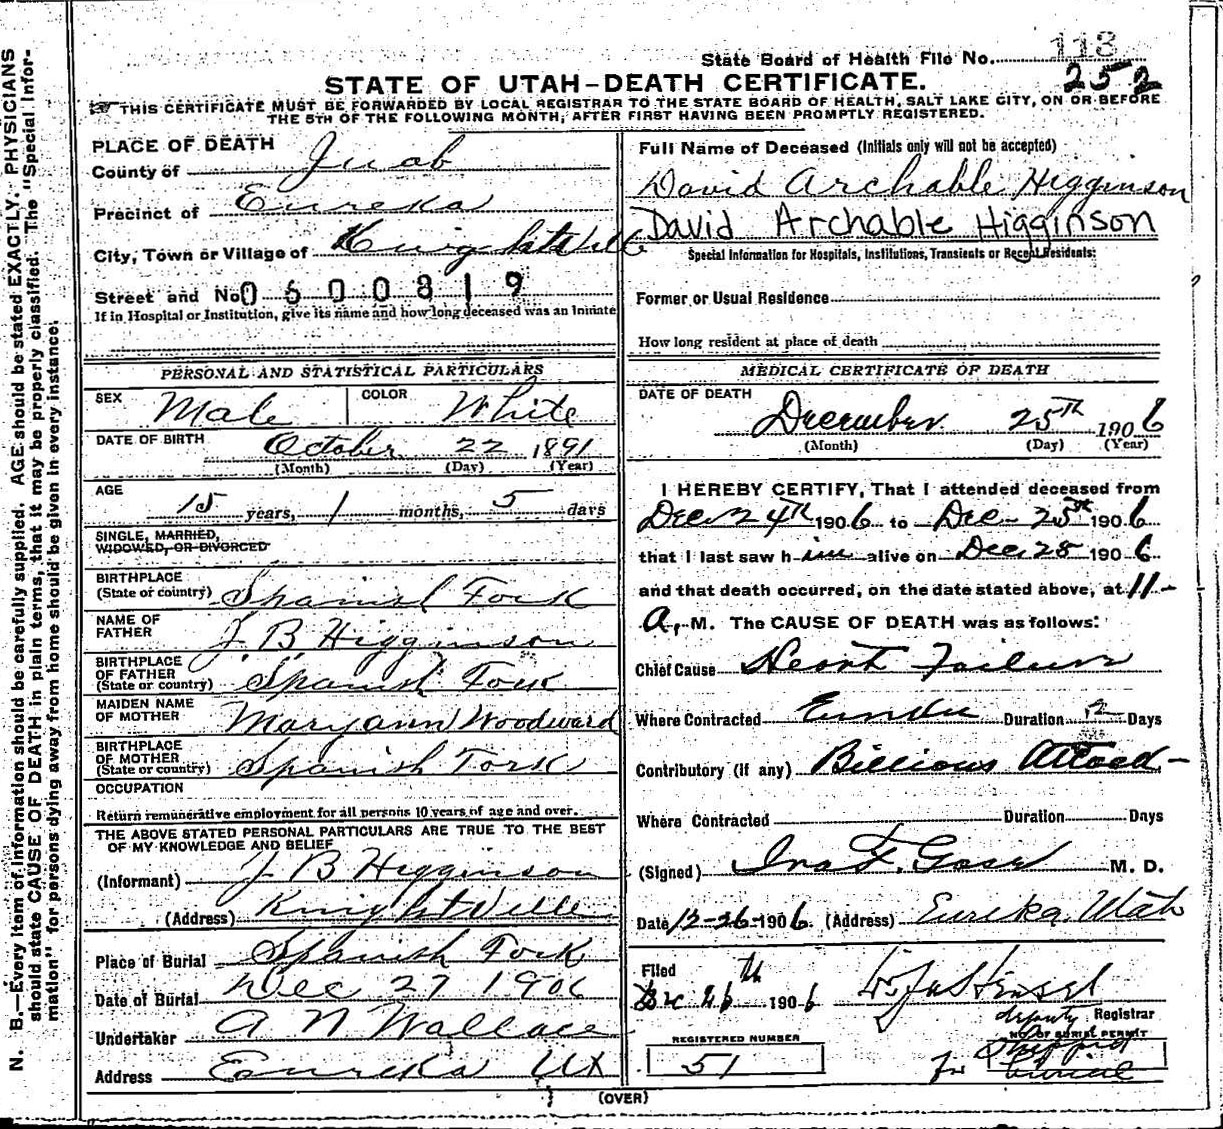 State Board of Health File No. 113
252
STATE OF UTAH-DEATH CERTIFICATE.
THIS CERTIFICATE MUST BE FORWARDED BY LOCAL REGISTRAR TO THE STATE BOARD OF HEALTH, SALT LAKE CITY, ON OR BEFORE
THE 5TH OF THE FOLLOWING MONTH, AFTER FIRST HAVING BEEN PROMPTLY REGISTERED.
PLACE OF DEATH
County of Juab
Precinct of Eureka
City, Town or Village of Knightville
Street and No. 0600819
If in Hospital or Institution, give its name and how long deceased was an Inmate
PERSONAL AND STATISTICAL PARTICULARS
SEX Male COLOR White
DATE OF BIRTH October 22 1891
(Month) (Day) (Year)
AGE
15 years, 1 months, 5 days
SINGLE, MARRIED,
WIDOWED, OR DIVORCED
BIRTHPLACE
(State or country) Spanish Fork
NAME OF
FATHER J. B Higginson
BIRTHPLACE
OF FATHER
(State or country) Spanish Fork
MAIDEN NAME
OF MOTHER Maryann Woodward
BIRTHPLACE
OF MOTHER
(State or country) Spanish Fork
OCCUPATION
Return remunerative employment for all persons 10 years of age and over.
THE ABOVE STATED PERSONAL PARTICULARS ARE TRUE TO THE BEST
OF MY KNOWLEDGE AND BELIEF
(Informant) J B Higginson
(Address) KnightVille
Place of Burial Spanish Fork
Date of Burial Dec 27 1906
Undertaker A N Wallace
Address Eureka Ut
Full Name of Deceased (Initials only will not be accepted)
David Archable Higginson
David Archable Higginson
Special Information for Hospitals, Institutions, Transients or Recent Residents:
Former or Usual Residence
How long resident at place of death
MEDICAL CERTIFICATE OF DEATH
DATE OF DEATH
December 25TH 1906
(Month) (Day) (Year)
I HEREBY CERTIFY, That I attended deceased from
Dec 24TH 1906 to Dec- 25TH 1906
that I last saw him alive on Dec 25 1906
and that death occurred, on the date stated above, at 11-
A. M. The CAUSE OF DEATH was as follows:
Chief Cause Heart Failure
Where Contracted Eureka Duration 2 Days
Contributory (if any) Billious Attack-
Where Contracted Duration Days
(Signed) F. M. D.
Date 12-26-1906. (Address) Eureka Utah
Filed
Dec 26th 1906
deputy Registrar
REGISTERED NUMBER
51
NO. OF BURIAL PERMIT
for burial
(OVER)
N. B.—Every item of information should be carefully supplied. AGE should be stated EXACTLY. PHYSICIANS
should state CAUSE OF DEATH in plain terms, that it may be properly classified. The "Special Infor-
mation" for persons dying away from home should be given in every instance.